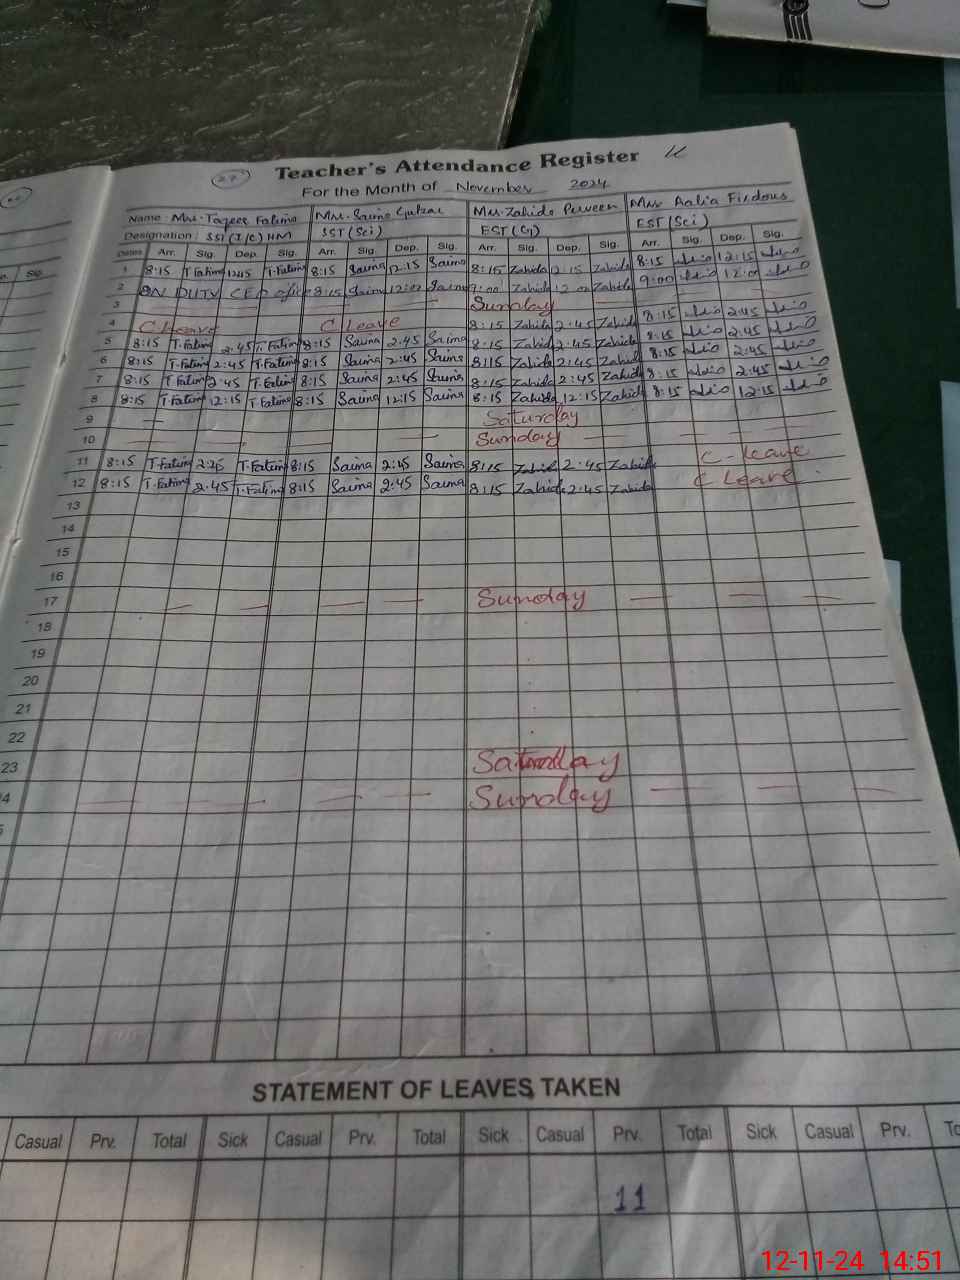 27
Teacher's Attendance Register
For the Month of November 2024
Name: Mrs. Fatima Mrs. Saima Mrs. Zahida Perveen Mrs Aalia Firdous
Designation: SST (I/C) HM SST (Sci) EST (G) EST (Sci)
Dates Arr. Sig. Dep. Sig. Arr. Sig. Dep. Sig. Arr. Sig. Dep. Sig. Arr. Sig. Dep. Sig.
1 8:15 T.Fatima 12:15 T.Fatima 8:15 Saima 12:15 Saima 8:15 Zahida 12:15 Zahida 8:15 12:15
2 ON DUTY CEO office 8:15 Saima 12:00 Saima 9:00 Zahida 12:00 Zahida 9:00 12:00
3 Sunday
4 C Leave C Leave 8:15 Zahida 2:45 Zahida 8:15 2:45
5 8:15 T.Fatima 2:45 T.Fatima 8:15 Saima 2:45 Saima 8:15 Zahida 2:45 Zahida 8:15 2:45
6 8:15 T.Fatima 2:45 T.Fatima 8:15 Saima 2:45 Saima 8:15 Zahida 2:45 Zahida 8:15 2:45
7 8:15 T.Fatima 2:45 T.Fatima 8:15 Saima 2:45 Saima 8:15 Zahida 2:45 Zahida 8:15 2:45
8 8:15 T.Fatima 12:15 T.Fatima 8:15 Saima 12:15 Saima 8:15 Zahida 12:15 Zahida 8:15 12:15
9 Saturday
10 Sunday
11 8:15 T.Fatima 2:45 T.Fatima 8:15 Saima 2:45 Saima 8:15 Zahida 2:45 Zahida C-Leave
12 8:15 T.Fatima 2:45 T.Fatima 8:15 Saima 2:45 Saima 8:15 Zahida 2:45 Zahida C Leave
13
14
15
16
17 Sunday
18
19
20
21
22
23 Saturday
4 Sunday
STATEMENT OF LEAVES TAKEN
Casual Prv. Total Sick Casual Prv. Total Sick Casual Prv. Total Sick Casual Prv. To
11
12-11-24 14:51